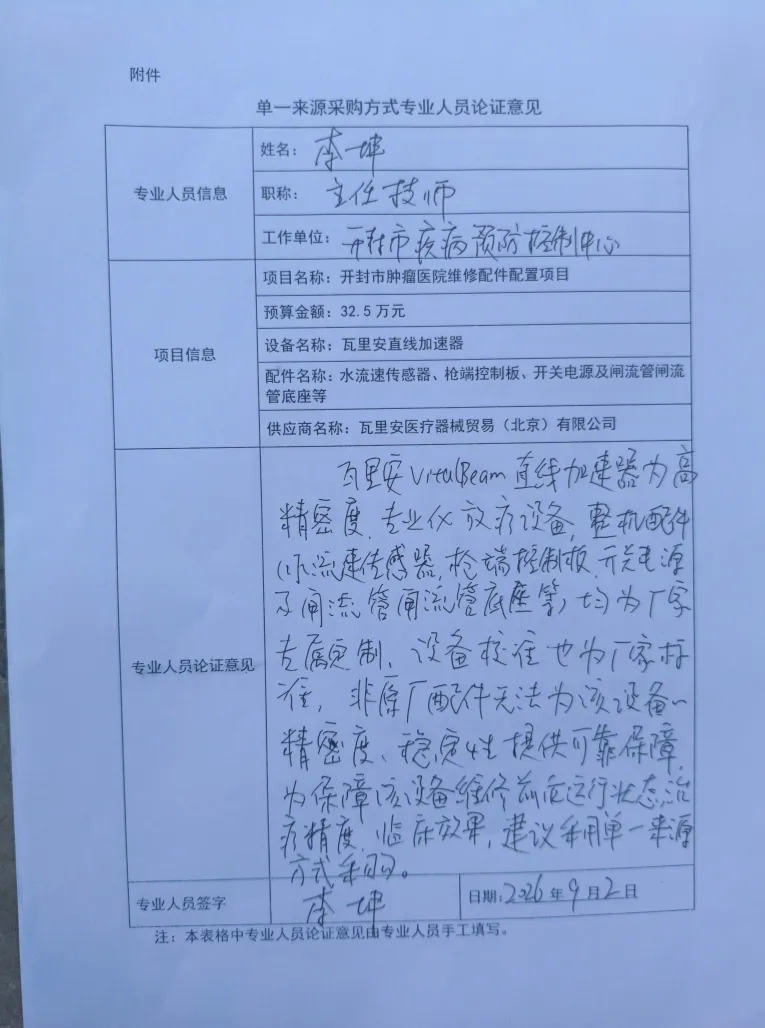 附件
单一来源采购方式专业人员论证意见
专业人员信息
姓名：李坤
职称：主任技师
工作单位：开封市疾病预防控制中心
项目信息
项目名称：开封市肿瘤医院维修配件配置项目
预算金额：32.5万元
设备名称：瓦里安直线加速器
配件名称：水流速传感器、枪端控制板、开关电源及闸流管闸流
管底座等
供应商名称：瓦里安医疗器械贸易（北京）有限公司
专业人员论证意见
瓦里安VitalBeam直线加速器为高
精密度、专业化放疗设备，整机配件
（水流速传感器、枪端控制板、开关电源
及闸流管闸流管底座等）均为厂家
专属定制、设备校准也为厂家标
准，非原厂配件无法为该设备的
精密度、稳定性提供可靠保障，
为保障该设备维修前后运行状态治
疗精度、临床效果，建议采用单一来源
方式采购。
专业人员签字
李坤
日期：2026年9月2日
注：本表格中专业人员论证意见由专业人员手工填写。